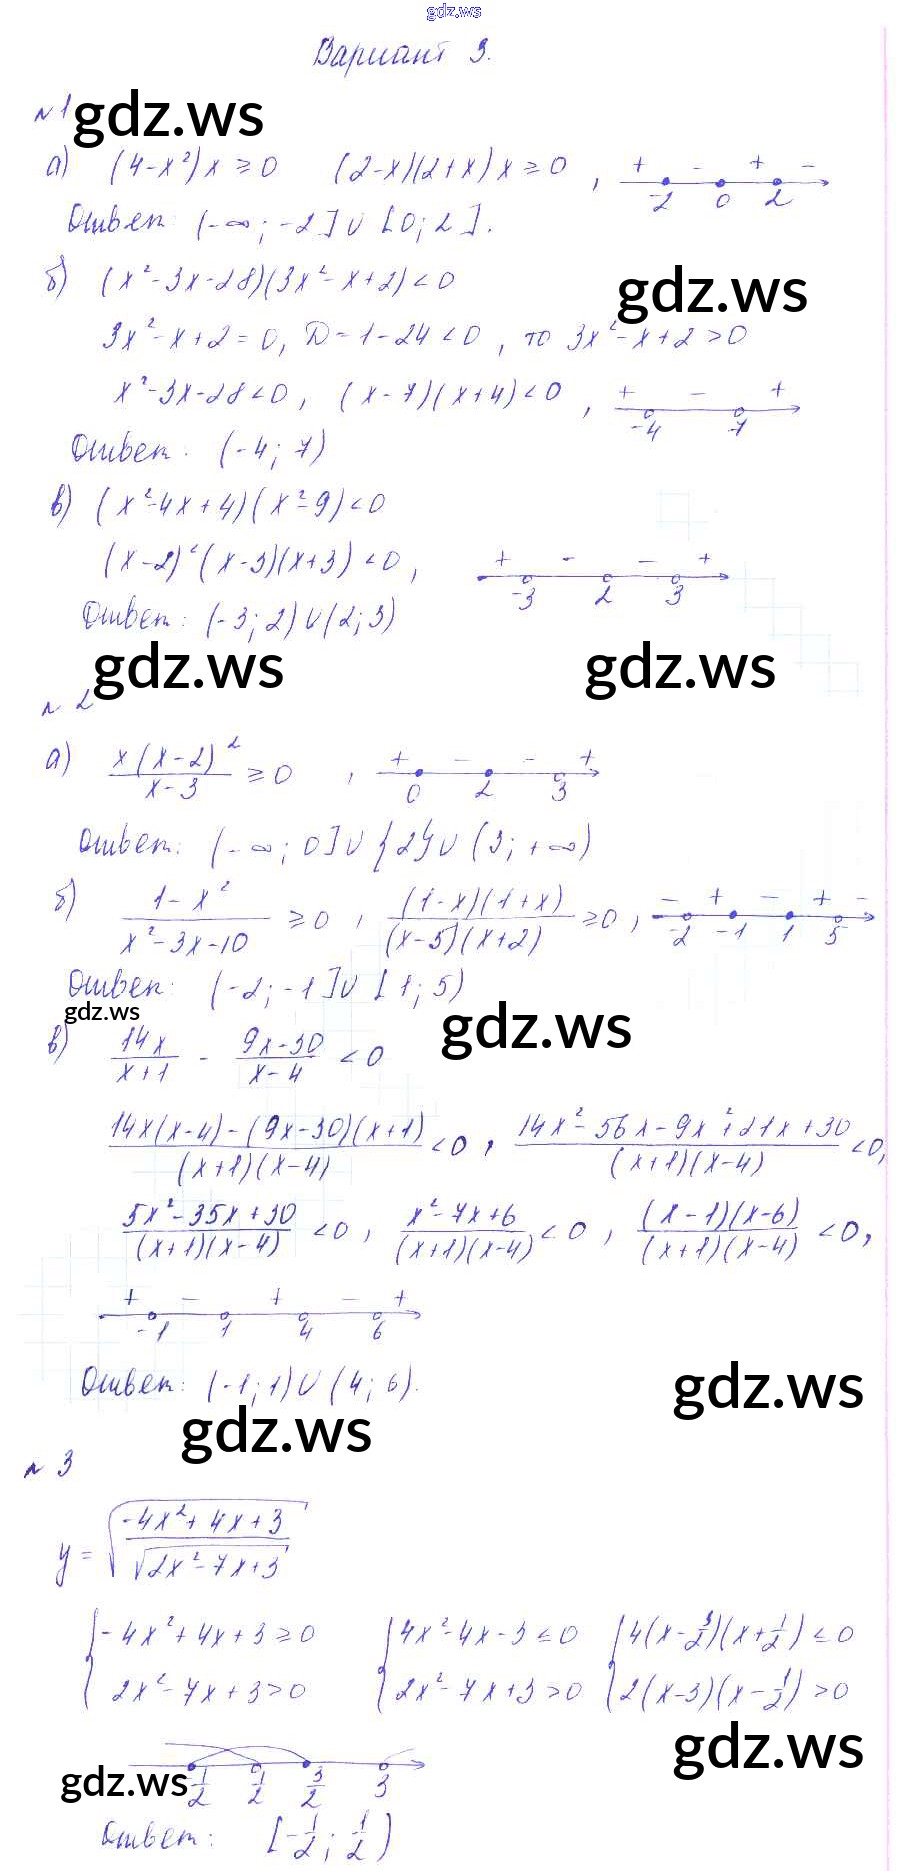 gdz.ws
Вариант 3.
№1 gdz.ws
а) (4-x²)x ≥ 0 (2-x)(2+x)x ≥ 0 , + - + -
-2 0 2
Ответ: (-∞; -2]∪[0; 2].
б) (x²-3x-28)(3x²-x+2)<0 gdz.ws
3x²-x+2=0, D=1-24<0, то 3x²-x+2>0
x²-3x-28<0, (x-7)(x+4)<0 , + - +
-4 7
Ответ. (-4; 7)
в) (x²-4x+4)(x²-9)<0
(x-2)²(x-3)(x+3)<0, + - - +
-3 2 3
Ответ: (-3; 2)∪(2; 3)
gdz.ws gdz.ws
№2
а) x(x-2)²/(x-3) ≥ 0 , + - - +
0 2 3
Ответ: (-∞; 0]∪{2}∪(3; +∞)
б) (1-x²)/(x²-3x-10) ≥ 0 , (1-x)(1+x)/((x-5)(x+2)) ≥ 0, - + - + -
-2 -1 1 5
Ответ: (-2; -1]∪[1; 5)
gdz.ws gdz.ws
в) 14x/(x+1) - (9x-30)/(x-4) < 0
(14x(x-4)-(9x-30)(x+1))/((x+1)(x-4)) <0 , (14x²-56x-9x²+21x+30)/((x+1)(x-4)) <0,
(5x²-35x+30)/((x+1)(x-4)) <0 , (x²-7x+6)/((x+1)(x-4)) <0 , (x-1)(x-6)/((x+1)(x-4)) <0,
+ - + - +
-1 1 4 6
Ответ: (-1; 1)∪(4; 6).
gdz.ws
gdz.ws
№3
y = √((-4x²+4x+3)/√(2x²-7x+3))
{-4x²+4x+3≥0 {4x²-4x-3≤0 {4(x-3/2)(x+1/2)≤0
2x²-7x+3>0 2x²-7x+3>0 2(x-3)(x-1/2)>0
gdz.ws
gdz.ws -1/2 1/2 3/2 3
Ответ: [-1/2; 1/2)